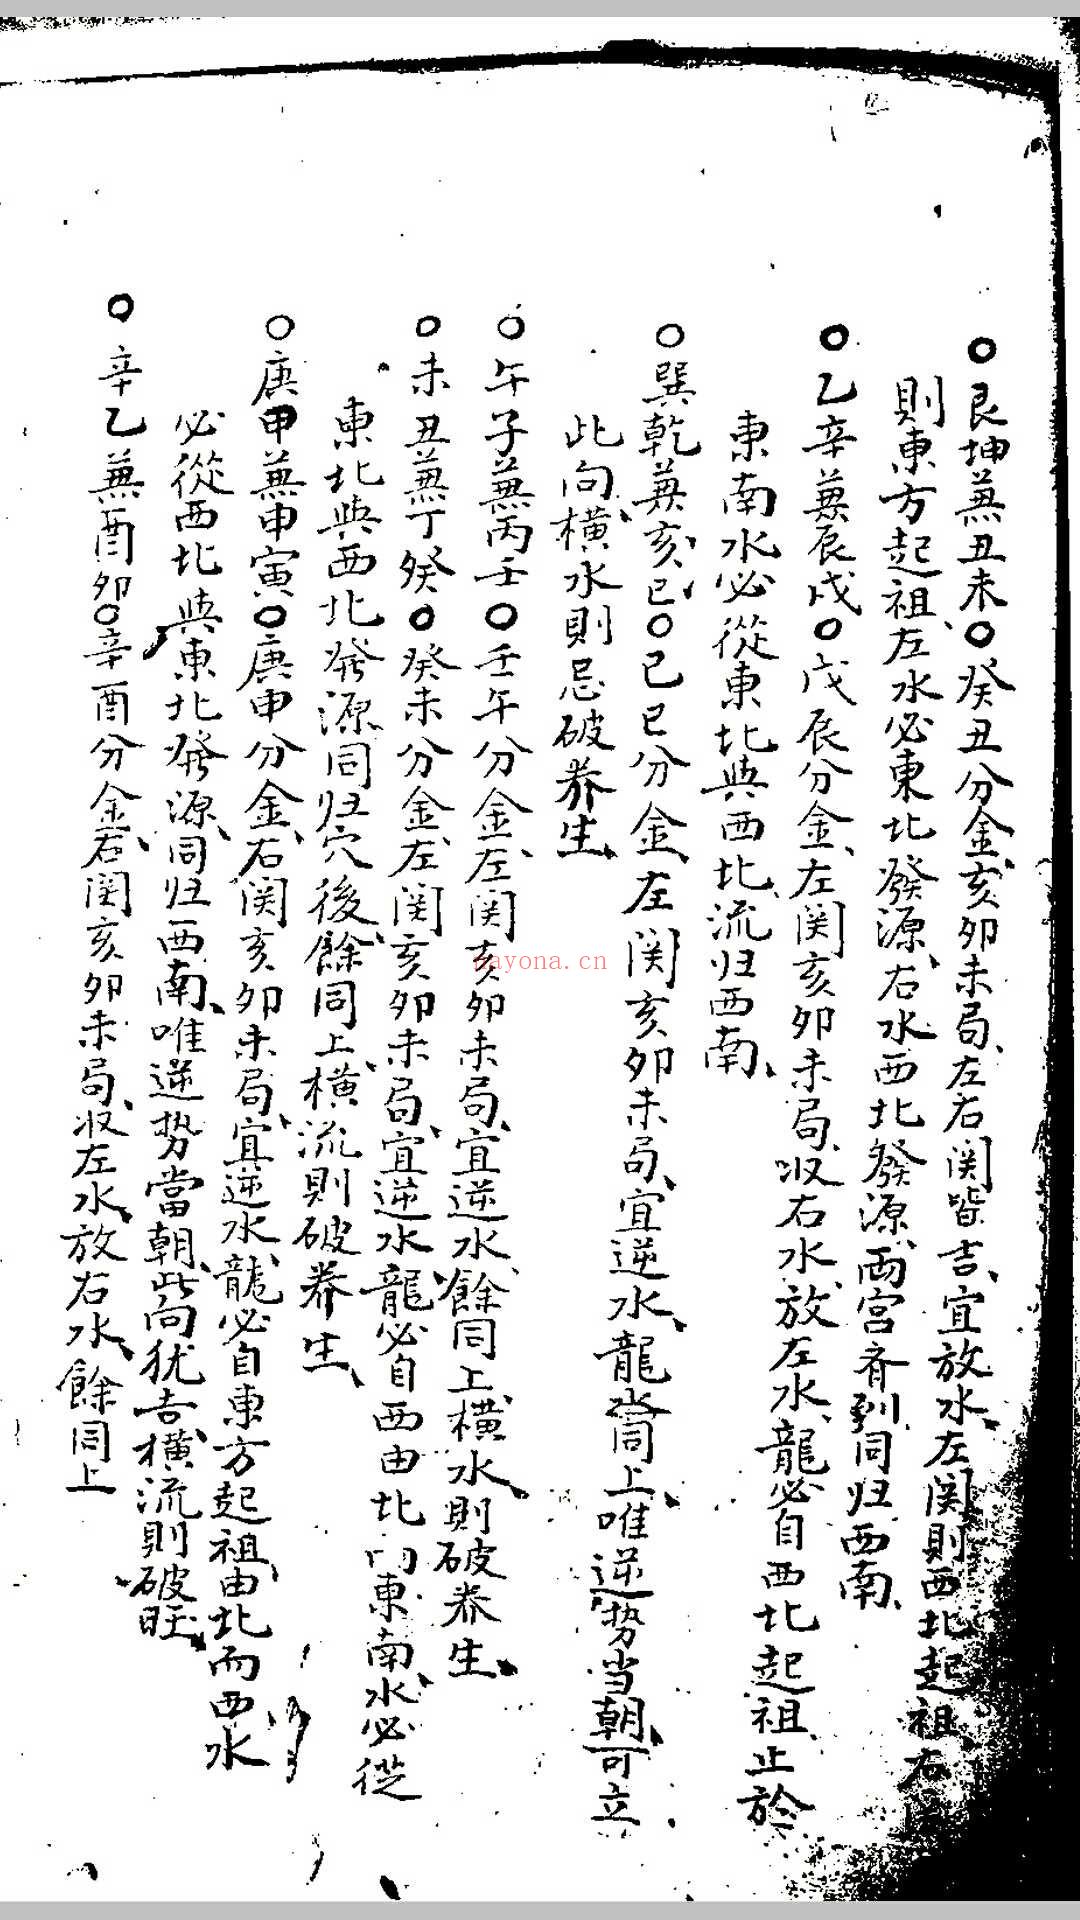 ○艮坤蒹丑未○癸丑分金、亥卯未局、左右関皆吉、宜放水、左関則西北起祖、右
則東方起祖、左水必東北發源、右水西北發源、両宮齐到、同归西南、
○乙辛蒹辰戌○戊辰分金、左関亥卯未局、収右水、放左水、龍必自西北起祖、止於
東南水必從東北與西北、流归西南、
○巽乾蒹亥巳○己巳分金、左関亥卯未局、宜逆水、龍水同上、唯逆势当朝、可立
此向、横水則忌破养生、
○午子蒹丙壬○壬午分金、左関亥卯未局、宜逆水、餘同上、横水則破养生、
○未丑蒹丁癸○癸未分金、左関亥卯未局、宜逆水、龍必自西由北 東南、水必從
東北與西北發源、同归穴後、餘同上、横流則破养生、
○庚甲蒹申寅○庚申分金、右関亥卯未局、宜逆水、龍必自東方起祖、由北而西、水
必從西北與東北發源、同归西南、唯逆势當朝、此向犹吉、横流則破旺、
○辛乙蒹酉卯○辛酉分金、右関亥卯未局、収左水、放右水、餘同上
nayona.cn